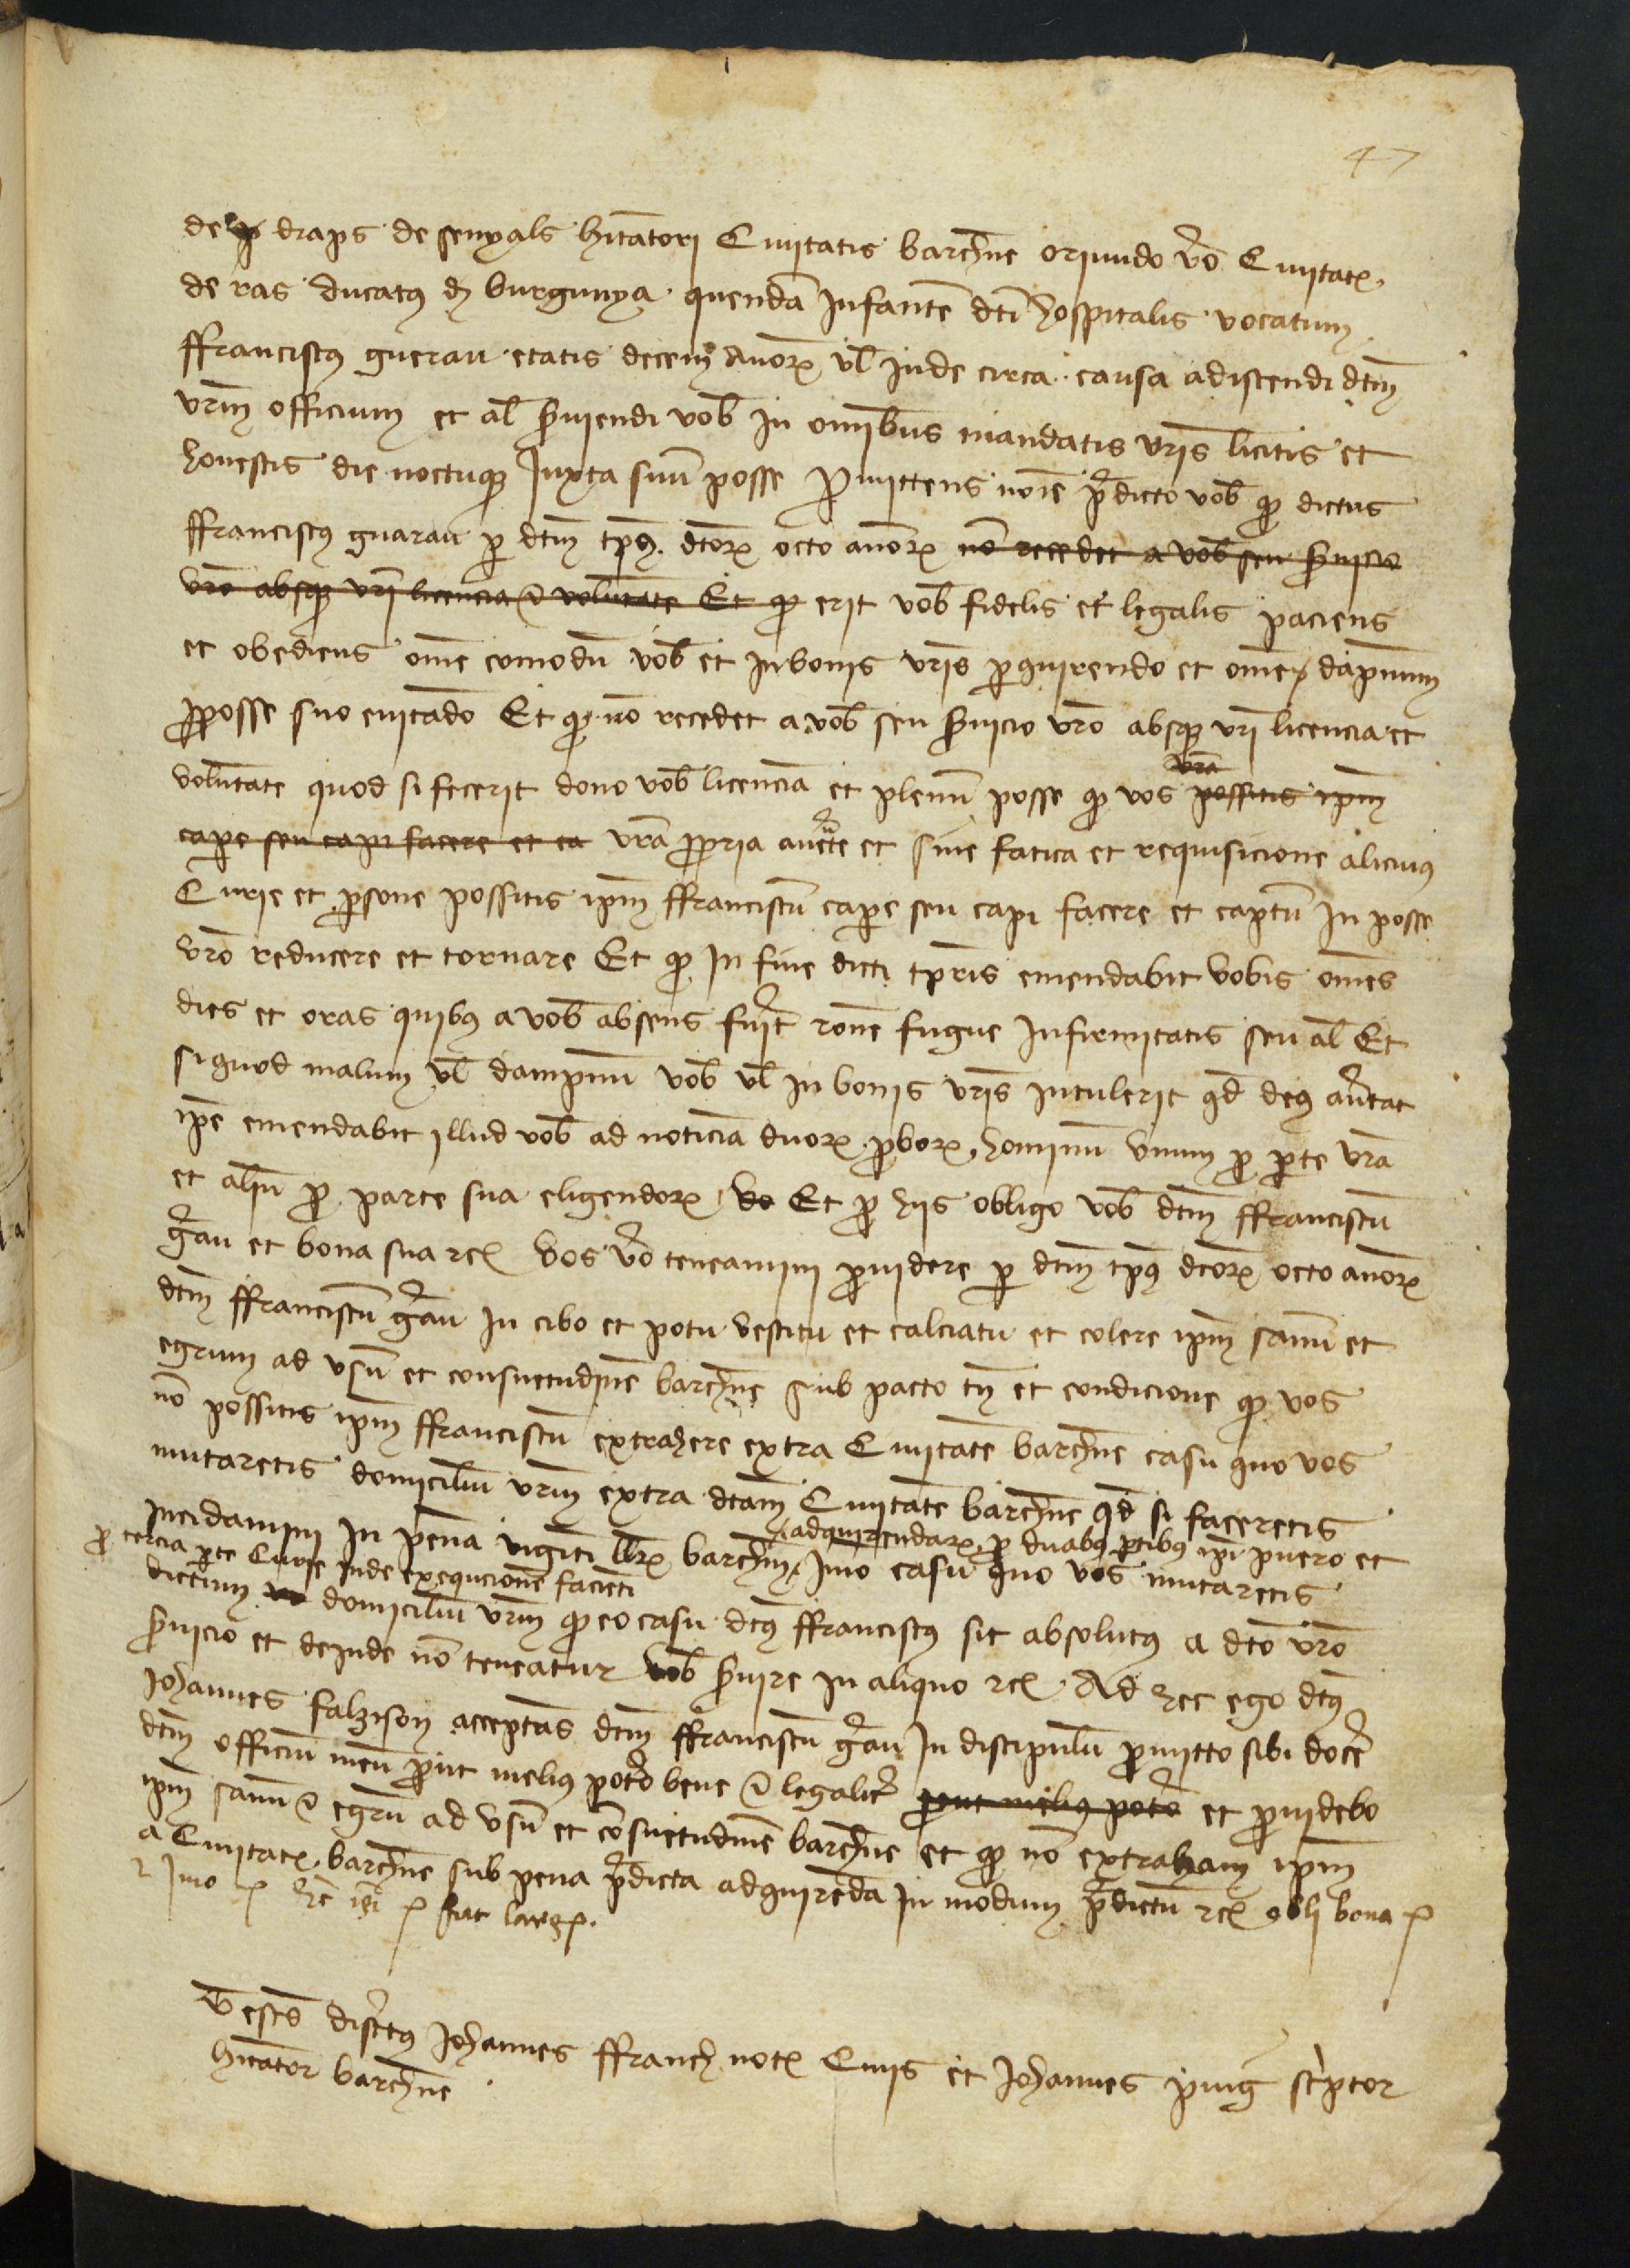 47
de draps de senyals hitatori Civitatis barchne oriundo vo Civitatis
de ras ducatus de burgunya quendam infante dti hospitalis vocatum
ffranciscus guerau etatis decem annorum vl inde circa causa adiscendi dtm
vrm officium et al serviendi vob in omibus mandatis vris licitis et
honestis die noctuque Juxta suu posse Promittens noie predicto vob quod dictus
ffranciscus guarau per dtm tps dtorum octo annorum no recedet a vob seu servicio
vro absque vri licencia et voluntate Et quod erit vob fidelis et legalis paciens
et obediens ome comodu vob et in bonis vris perquirendo et ome dapnum
pro posse suo evitado Et quod no recedet a vob seu servicio vro absque vri licencia et
voluntate quod si fecerit dono vob licencia et plenu posse quod vos possitis ipm
vra
cape seu capi facere et ca vra propria aucte et sine fatica et requisicione alicuius
Curie et persone possitis ipm ffranciscu cape seu capi facere et captu in posse
vro reducere et tornare Et quod in fine dicti tpris emendabit vobis omes
dies et oras quibus a vob absens fuit rone fugue infirmitatis seu al Et
si quod malum vl dampnu vob vl in bonis vris intulerit qd deus avertat
ipe emendabit illud vob ad noticia duorum proborum hominu unum pro parte vra
et aliu pro parte sua eligendorum vo Et pro hiis obligo vob dtm ffranciscu
gerau et bona sua etc Vos vo teneamini providere per dtm tps dtorum octo annorum
dtm ffranciscu gerau in cibo et potu vestitu et calciatu et colere ipm sanu et
egrum ad usu et consuetudine barchne sub pacto tn et condicione quod vos
no possitis ipm ffranciscu extrahere extra Civitate barchne casu quo vos
mutaretis domiciliu vrm extra dtam Civitate barchne qd si faceretis
adquirendarum pro duabus ptibus ipi puero et
incidamini in pena viginti llrum barchm imo casu quo vos mutaretis
pro tercia pte Curie inde exequcione facienti
dictum domiciliu vrm quod eo casu dtus ffranciscus sit absolutus a dto vro
servicio et deinde no teneatur vob servire in aliquo etc Ad hec ego dtus
Johannes falzison acceptas dtm ffranciscu gerau in discipulu promitto sibi docere
dtm officiu meu prout melius potero bene et legaliter prout melius potero et providebo
ipm sanu et egru ad usu et consuetudine barchne et quod no extraham ipm
a Civitate barchne sub pena predicta adquireda in modum predictu etc obli bona
Testes discretus Johannes ffranch not Civis et Johannes puig scriptor
hitator barchne